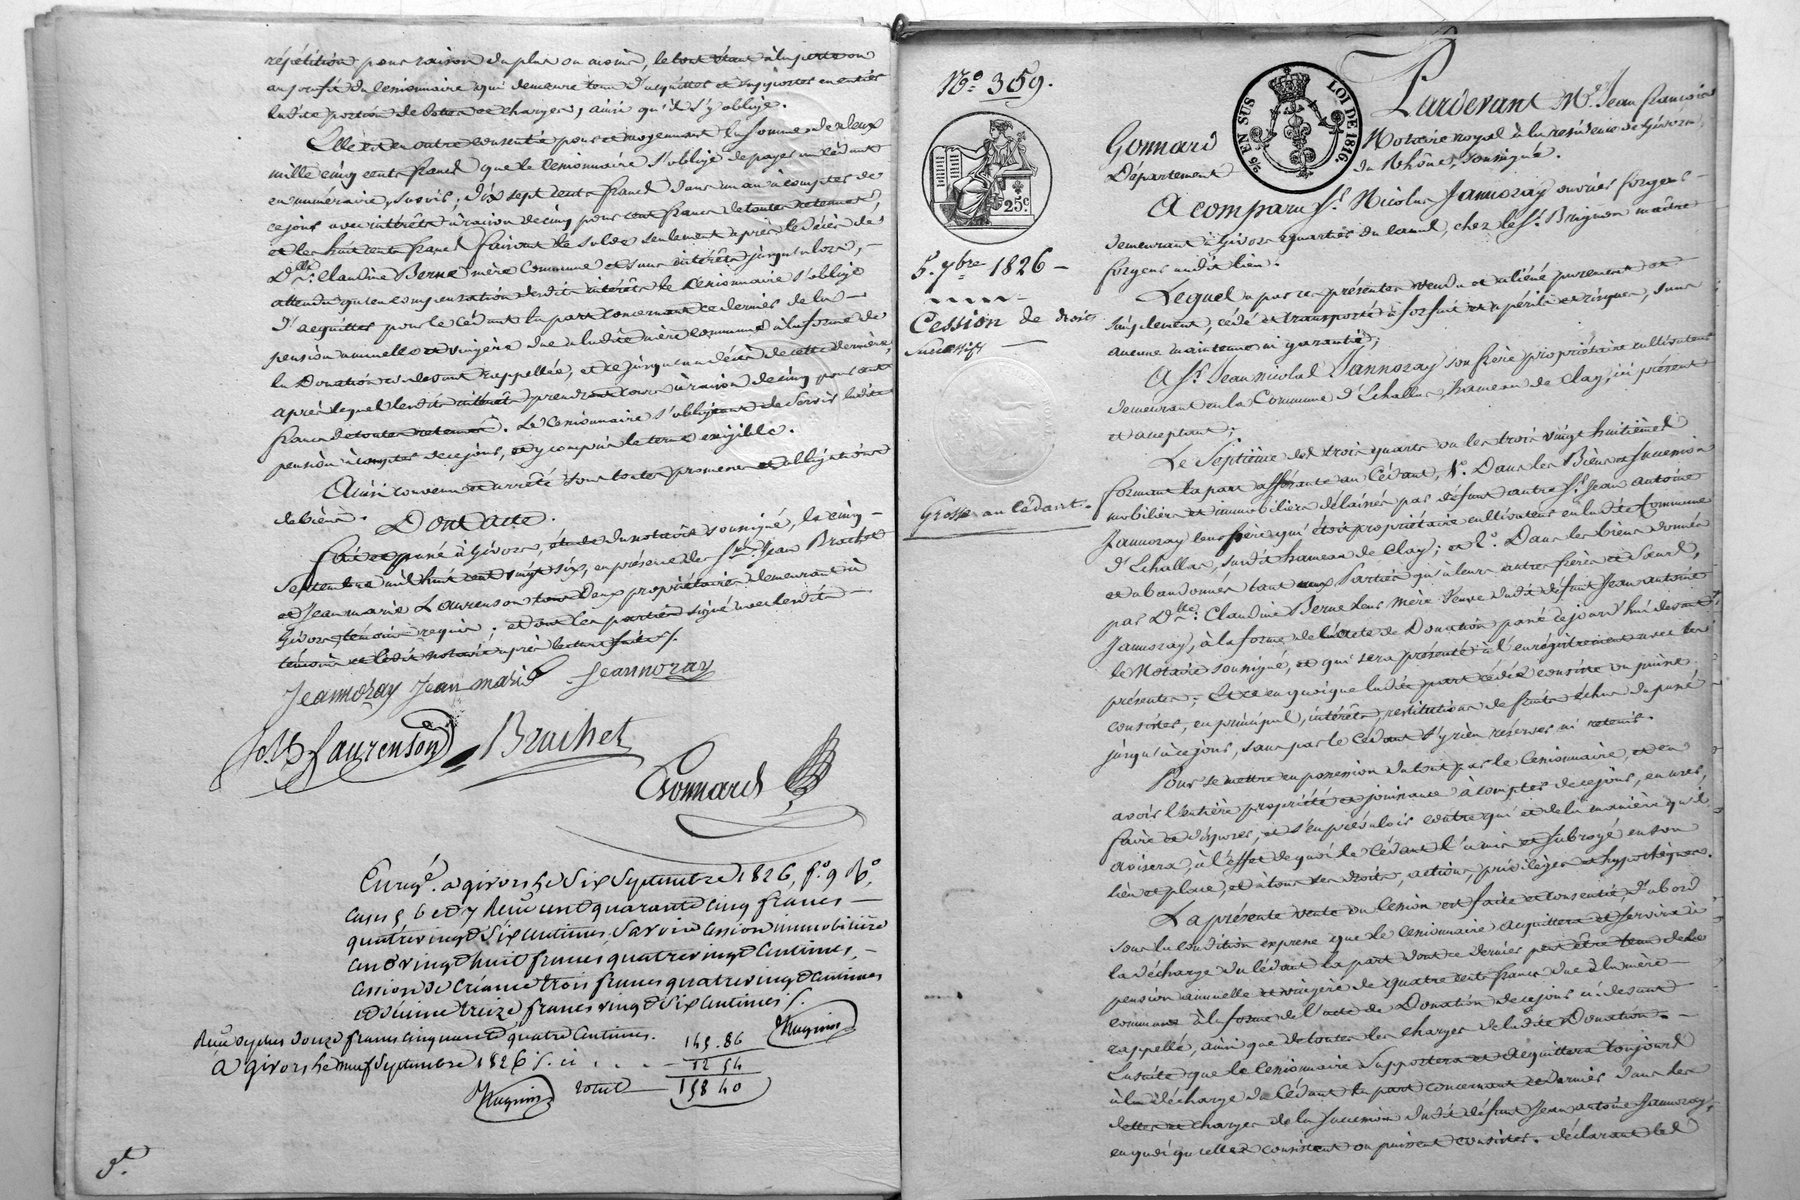 répétition pour raison du plus ou moins, le tout étant à la perte ou
au profit du Cessionnaire qui demeure tenu d'acquitter et supporter en entier
la dite portion de dettes et charges, ainsi qu'il s'y oblige.
Elle est en outre consentie pour et moyennant la somme de deux
mille cinq cents francs que le Cessionnaire s'oblige de payer au Cédant
en numéraire, savoir; dix sept cents francs dans un an à compter de
ce jour avec intérêts à raison de cinq pour cent francs de toutes retenues,
et les huit cents francs faisant le solde seulement après le décès de
Dlle Claudine Berne mère Commune et sans intérêts jusqu'alors,
attendu qu'en compensation desdits intérêts le Cessionnaire s'oblige
d'acquitter pour le Cédant la part concernant ce dernier de la
pension annuelle et viagère due à ladite mère commune à la forme de
la Donation ci devant rappellée, et ce jusqu'au décès de cette dernière,
après lequel lesdits intérêts prendront cours à raison de cinq pour cent
francs de toutes retenues. Le Cessionnaire s'obligeant de servir ladite
pension à compter de ce jour, et y compris le terme exigible.
Ainsi convenu et arrêté sous toutes promesses et obligations
de biens. Dont Acte.
Fait et passé à Givors, étude du notaire soussigné, le cinq
Septembre mil huit cent vingt six, en présence de Srs Jean Brachet
et Jean marie Laurenson tous Deux propriétaires demeurant à
Givors, témoins requis; et ont les parties signé avec lesdits
témoins et ledit notaire après lecture faite.
Jeannoray Jean marie Jeannoray
J. M. Laurenson Brachet
Gonnard
Enregé. a givors le Six Septembre 1826, fo. 9 Ro,
cases 5 6 et 7 Reçu cent quarante cinq francs
quatre vingt Six centimes, Savoir Cession immobilière
cent vingt huit francs quatre vingt centimes,
Cession de créance trois francs quatre vingt centimes
et décime treize francs vingt Six centimes
Reçu de plus douze francs cinquante quatre centimes.
à givors le neuf Septembre 1826
145.86
12 54
total 158 40
No. 359.
25c
5. 7bre 1826
Cession de droits
Successifs
Grosse au Cédant.
26 EN SUS LOI DE 1816
Pardevant Me Jean francois
Gonnard Notaire royal à la résidence de Givors,
Département du Rhône, soussigné.
A comparu Sr. Nicolas Jannoray ouvrier forgeur
demeurant à Givors quartier du Canal, chez le Sr. Brignon maître
forgeur audit lieu.
Lequel a par ces présentes vendu et aliéné purement et
simplement, cédé et transporté à forfait et à périls et risques, sans
aucune maintenue ni garantie;
A Sr. Jean nicolas Jannoray son frère propriétaire cultivateur
demeurant en la Commune d'Echallas, hameau de Clay, ici présent
et acceptant;
Le Septième des trois quarts ou les trois vingt huitièmes
formant la part afférante au Cédant, 1o. Dans les Biens et Succession
mobilière et immobilière délaissés par défunt autre Sr. Jean antoine
Jannoray leur frère qui étoit propriétaire cultivateur en ladite Commune
d'Echallas, susdit hameau de Clay; et 2o. Dans les biens donnés
et abandonnés tant aux Parties qu'à leurs autres frères et sœurs,
par Dlle. Claudine Berne leur mère Veuve dudit défunt Jean antoine
Jannoray, à la forme de l'acte de Donation passé cejourd'hui devant
le Notaire soussigné, et qui sera présenté à l'enregistrement avec les
présentes; Et ce en quoique ladite part cédée consiste ou puisse
consister, en principal, intérêts, restitutions de fruits échus du passé
jusqu'à ce jour, sans par le Cédant s'y rien réserver ni retenir.
Pour se mettre en possession du tout par le Cessionnaire, et en
avoir l'entière propriété et jouissance à compter de ce jour, en user,
faire et disposer, et s'en prévaloir contre qui et de la manière qu'il
avisera, à l'effet de quoi le Cédant l'a mis et subrogé en son
lieu et place, et à tous ses droits, actions, privilèges et hypothèques.
La présente vente ou Cession est faite et consentie, d'abord
sous la condition expresse que le Cessionnaire acquittera et servira à
la décharge du Cédant la part dont ce dernier peut être tenu de la
pension annuelle et viagère de quatre cents francs due à la mère
commune à la forme de l'acte de Donation de ce jour ci devant
rappellé, ainsi que de toutes les charges de ladite Donation.
Ensuite que le Cessionnaire supportera et acquittera toujours
à la décharge du Cédant la part concernant ce dernier dans les
dettes et charges de la succession dudit défunt Jean antoine Jannoray,
en quoi qu'elles consistent ou puissent consister. déclarant les